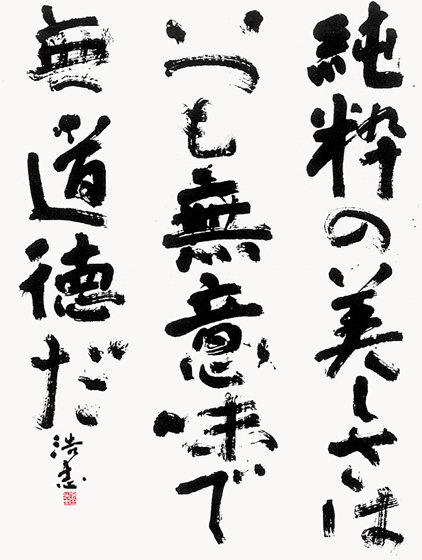 純粋の美しさは
いつも無意味で
無道徳だ
浩